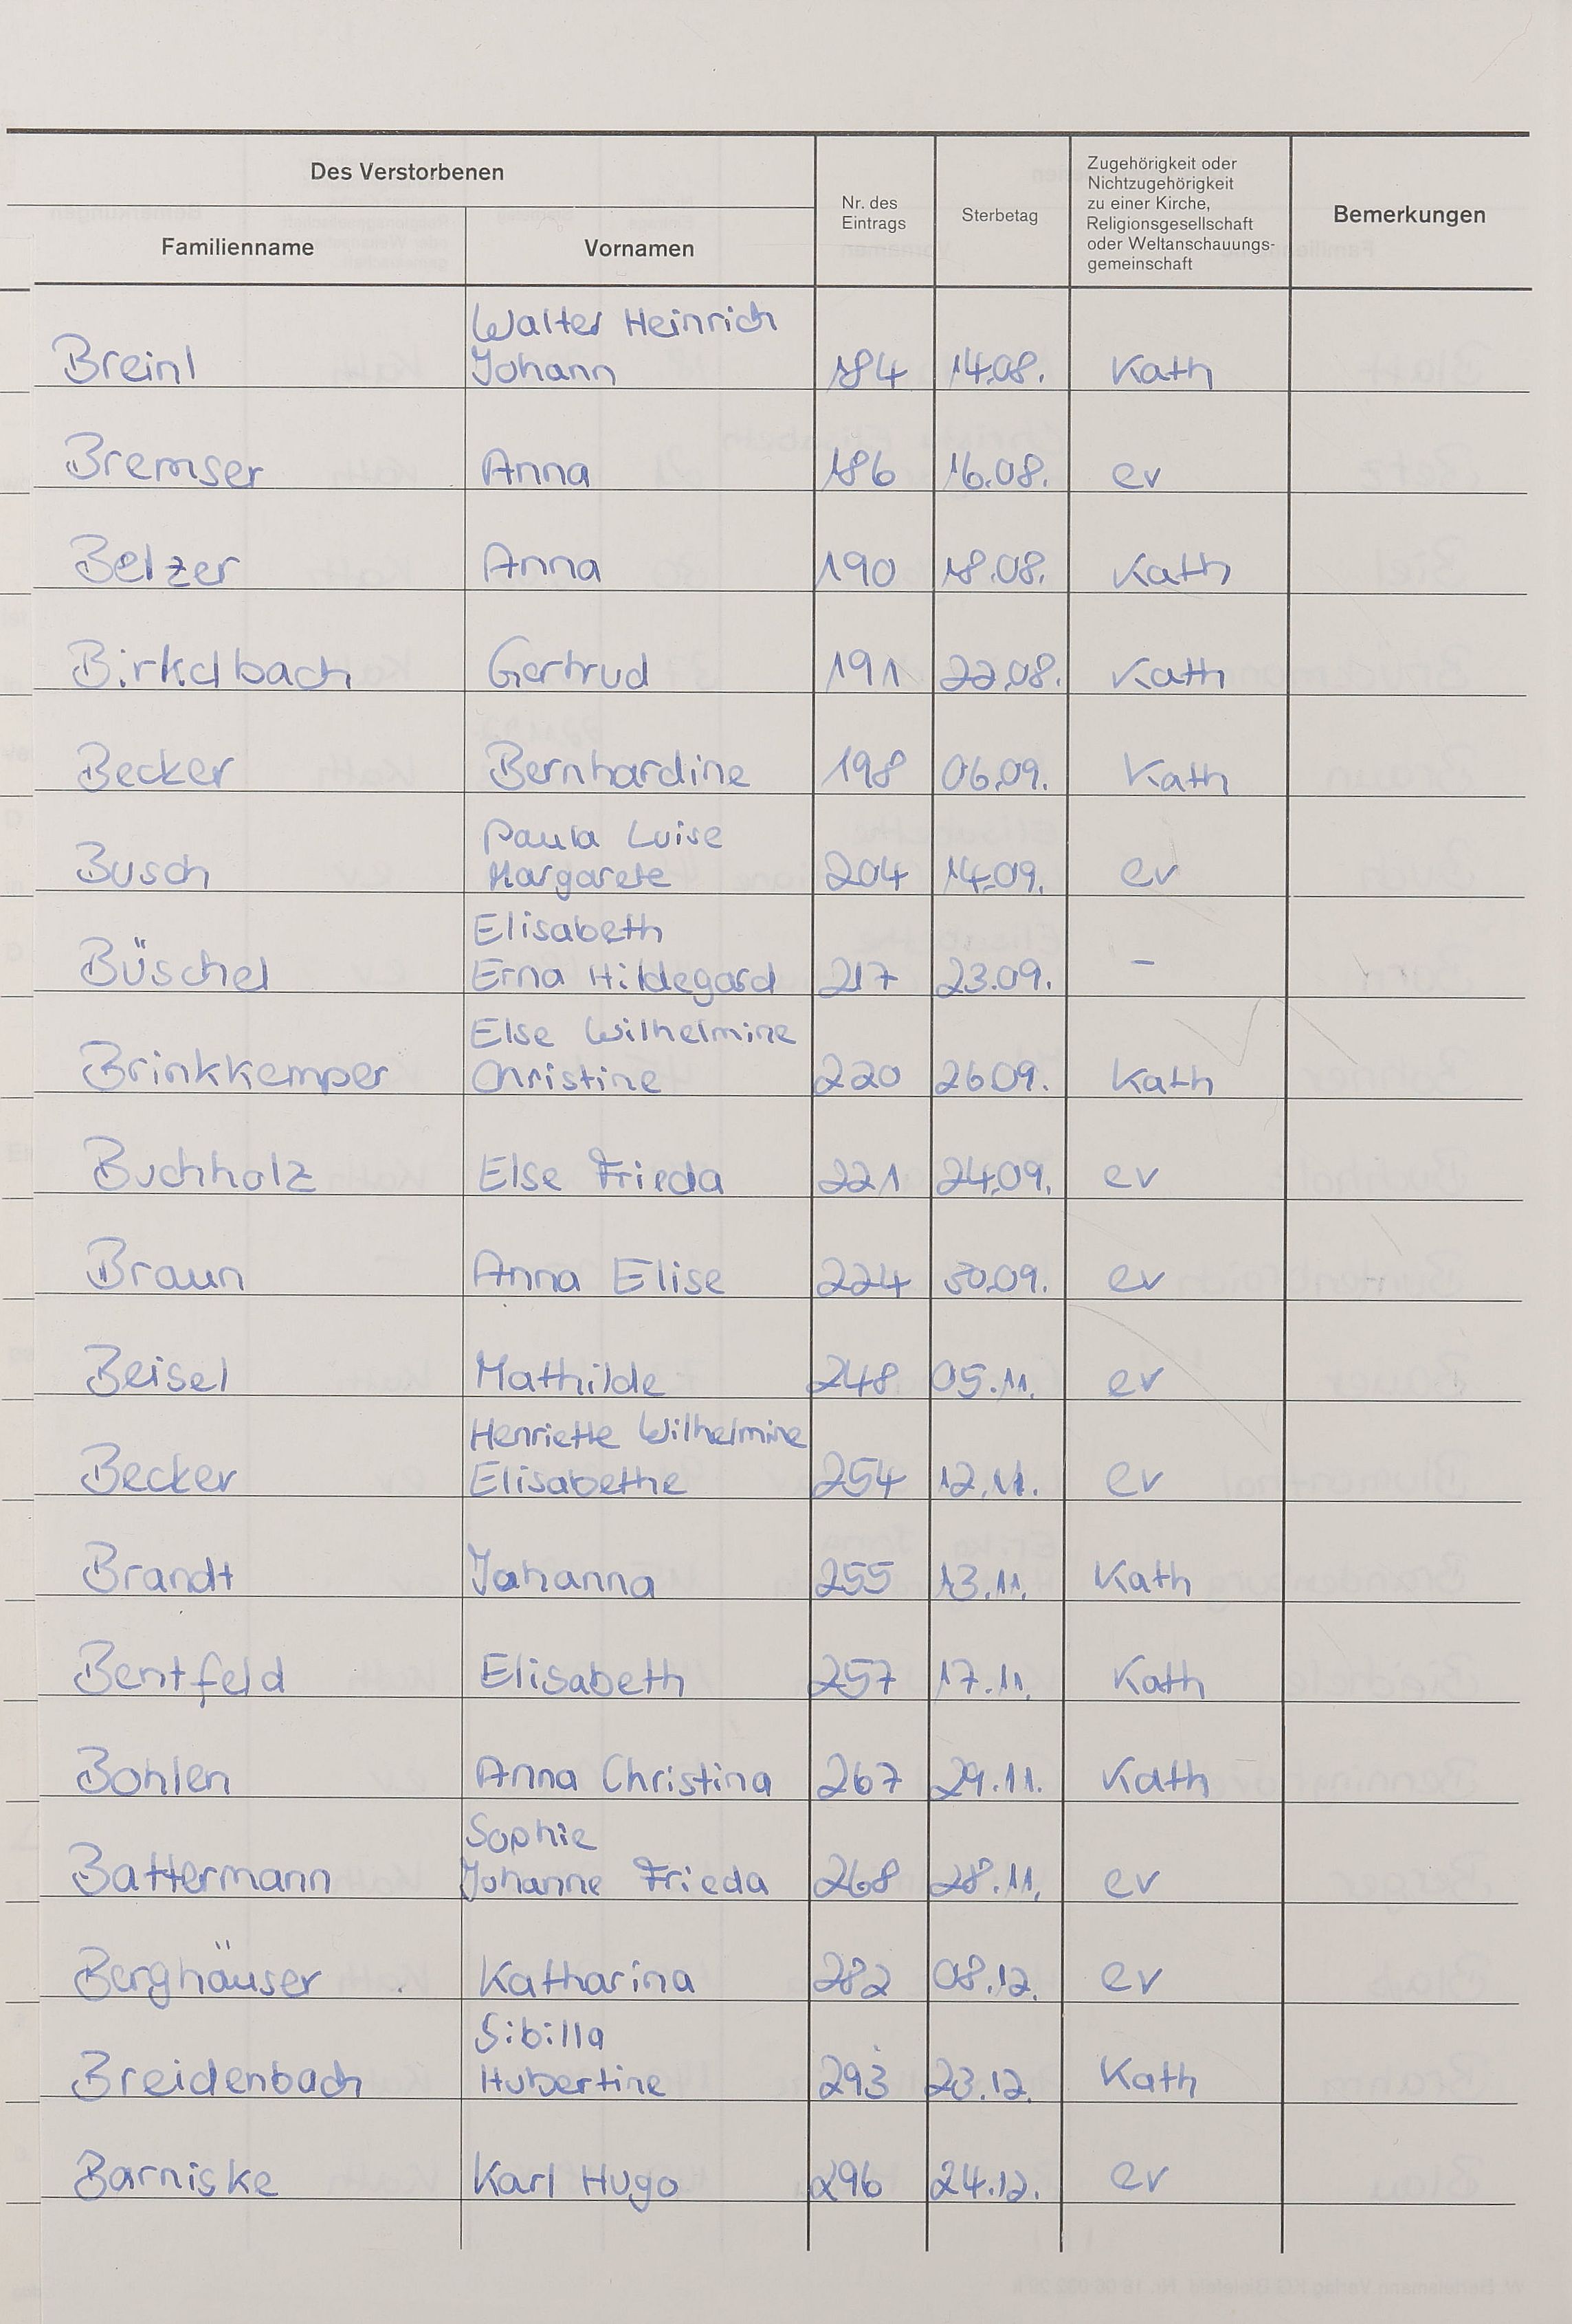 Des Verstorbenen
Familienname
Vornamen
Nr. des
Eintrags
Sterbetag
Zugehörigkeit oder
Nichtzugehörigkeit
zu einer Kirche,
Religionsgesellschaft
oder Weltanschauungs-
gemeinschaft
Bemerkungen
Walter Heinrich
Breinl Johann 184 14.08. Kath
Bremser Anna 186 16.08. ev
Belzer Anna 190 18.08. Kath
Birkelbach Gertrud 191 22.08. Kath
Becker Bernhardine 198 06.09. Kath
Paula Luise
Busch Margarete 204 14.09. ev
Elisabeth
Büschel Erna Hildegard 217 23.09. –
Else Wilhelmine
Brinkkemper Christine 220 26.09. Kath
Buchholz Else Frieda 221 24.09. ev
Braun Anna Elise 224 30.09. ev
Beisel Mathilde 248 05.11. ev
Henriette Wilhelmine
Becker Elisabethe 254 12.11. ev
Brandt Johanna 255 13.11. Kath
Bentfeld Elisabeth 257 17.11. Kath
Bohlen Anna Christina 267 29.11. Kath
Sophie
Battermann Johanne Frieda 268 28.11. ev
Berghäuser Katharina 282 08.12. ev
Sibilla
Breidenbach Hubertine 293 23.12. Kath
Barniske Karl Hugo 296 24.12. ev